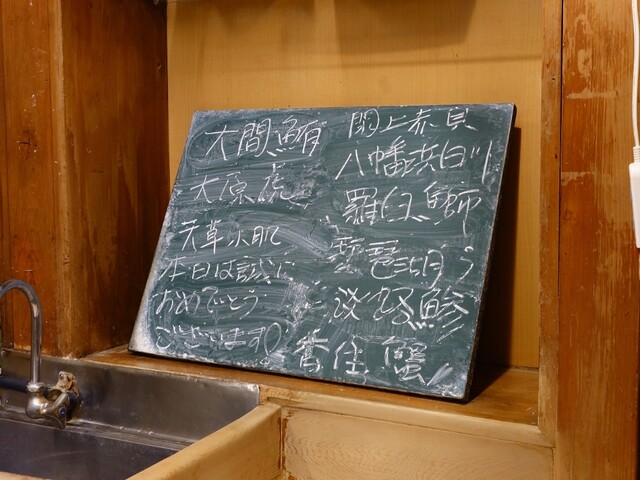 大間鮪
大原虎
天草小肌
本日は誠に
おめでとう
ございます。
閖上赤貝
八幡浜白川
羅臼鰤
香住蟹